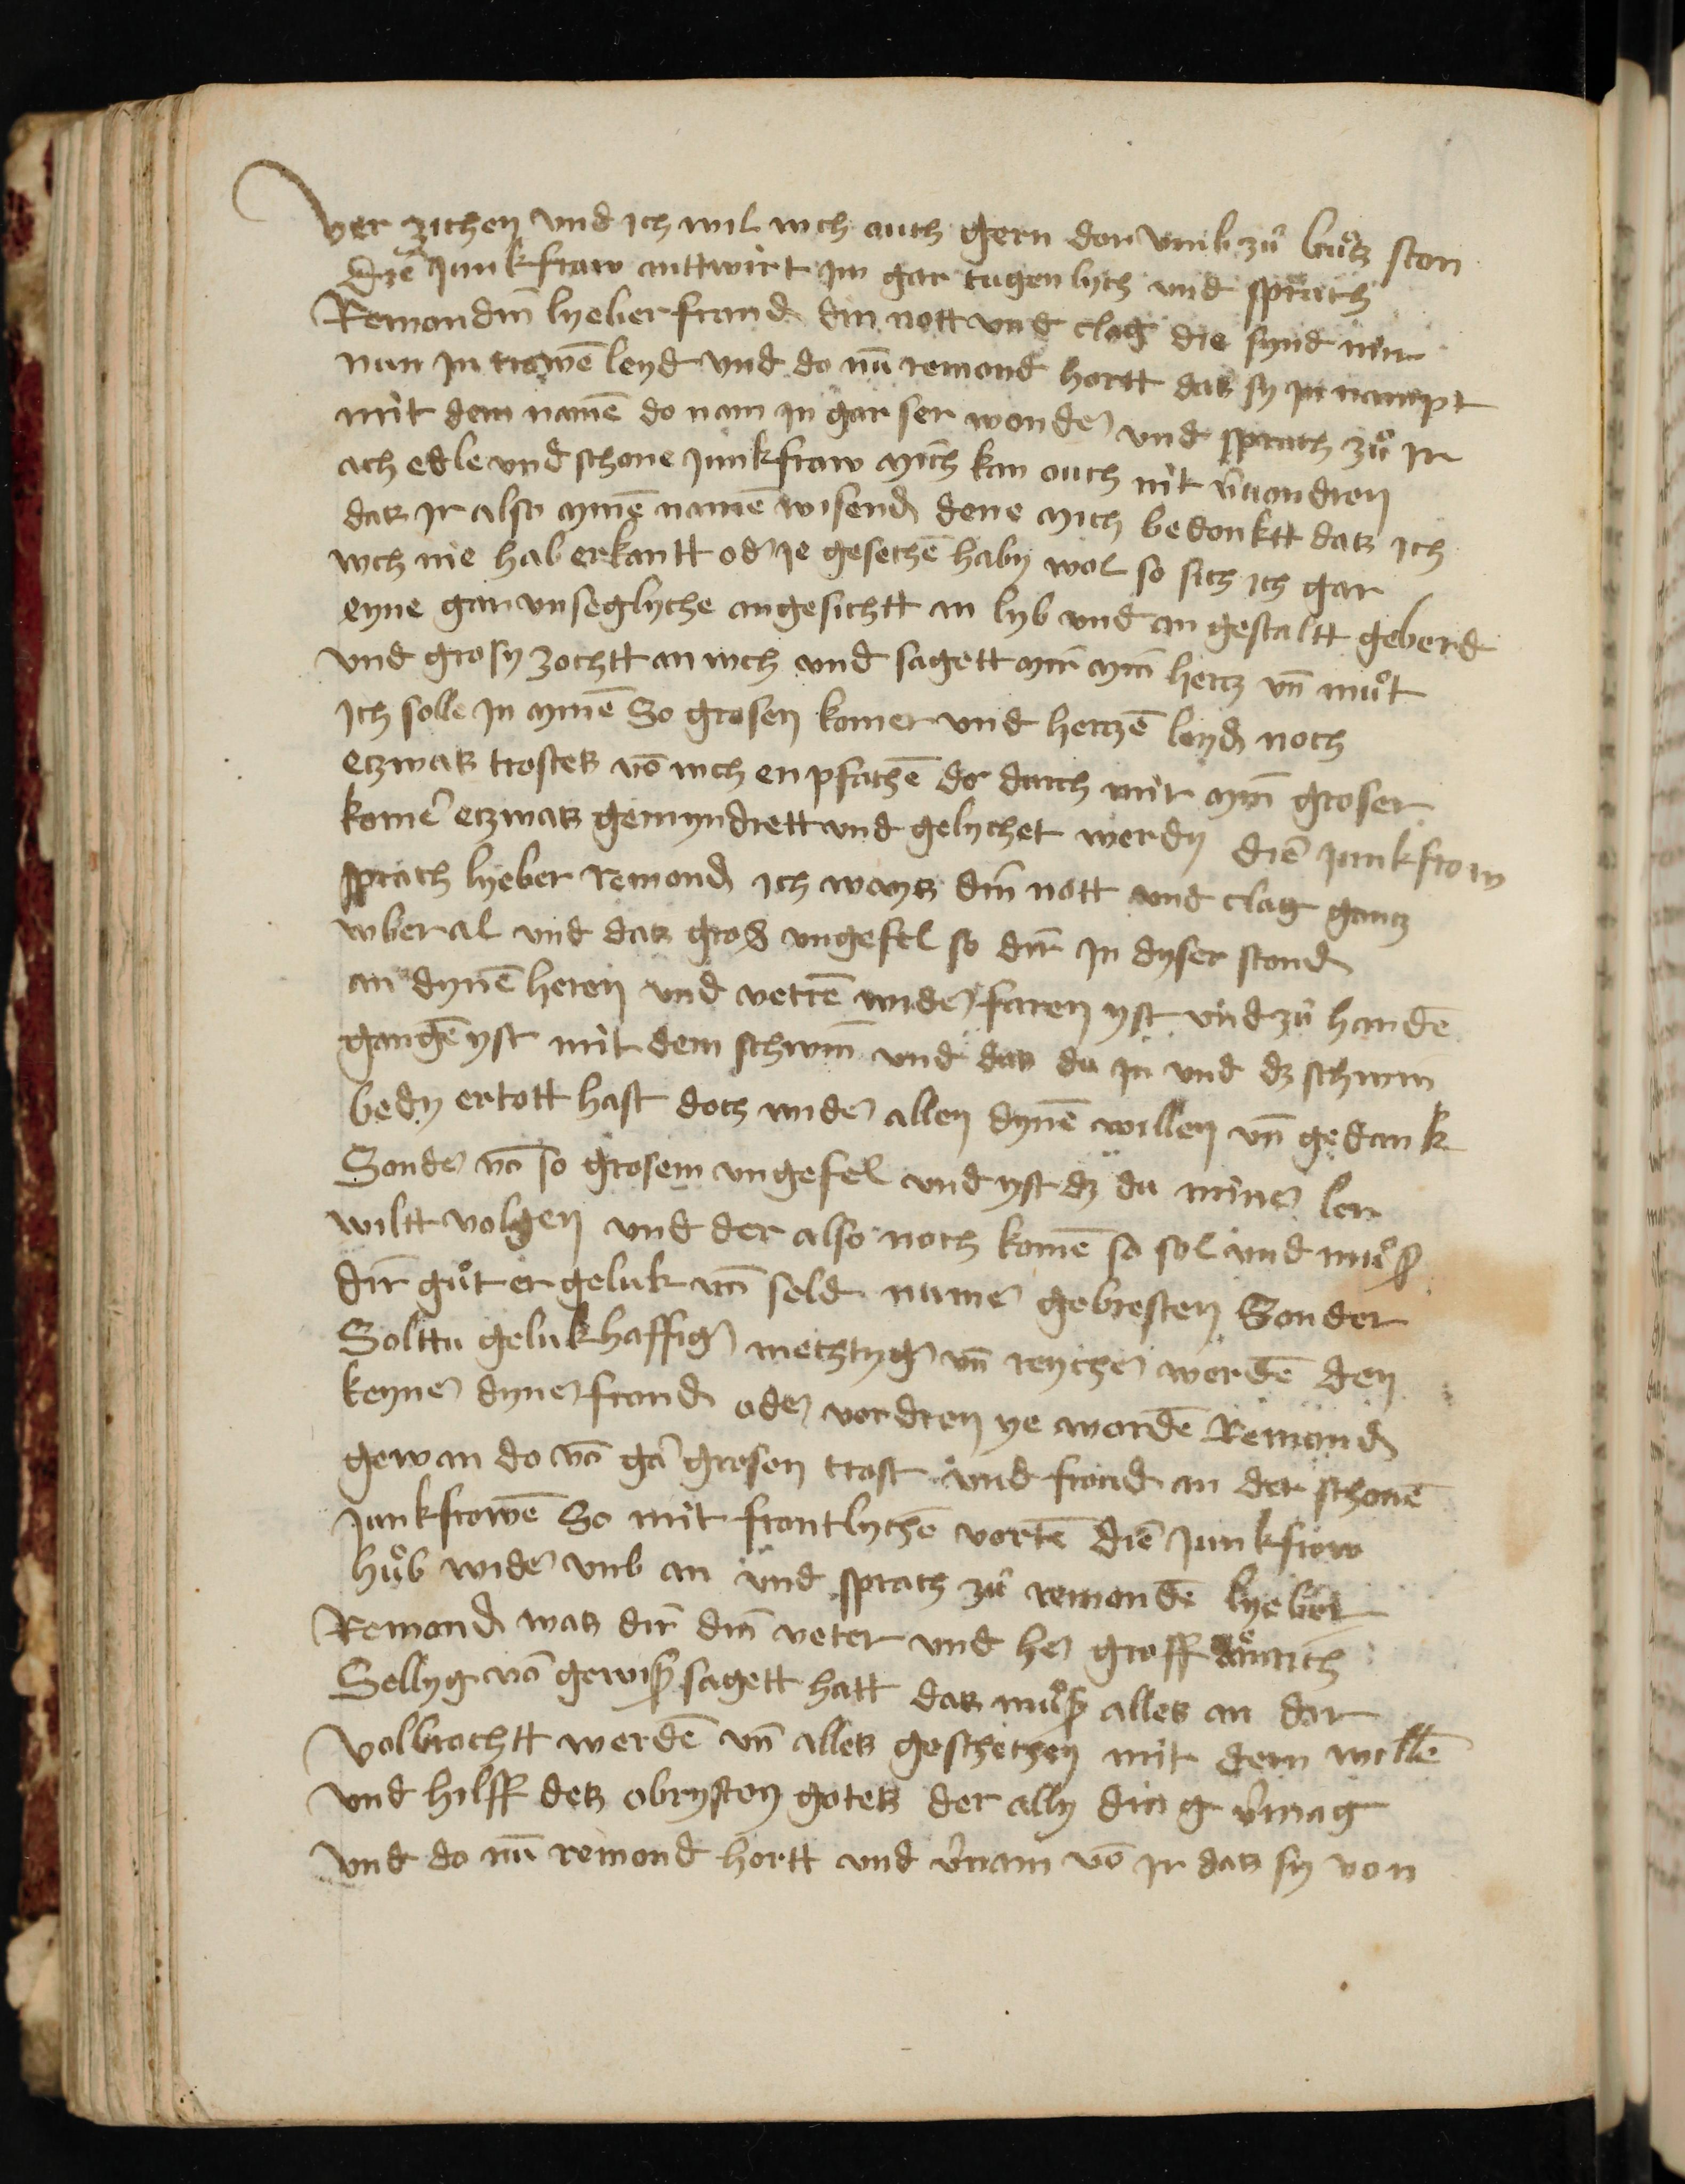 ver zichen vnd ich wil vch auch gern dor vmb zuͦ buͦsz ston
Dye Junkfraw anttwirt im gar tugenlych vnd sprach
Remond min lyeber frand din nott vnd clag die synd mir
nun jn trowē leyd vnd do nū remond hortt das sy jn nampt
mit dem namē do nam jn gar ser wonder vnd sprach zuͦ jr
ach edle vnd schone junkfraw mich kan ouch nit v̄wondren
das jr also mynē namē wisend dene mich bedonktt das ich
vch nie hab erkantt oder je gesechē haby wol so sich ich gar
eyne gar vnseglyche angesichtt an lyb vnd an gestaltt geberd
vnd grosy zochtt an vch vnd sagett mir min hertz vn̄ muͦt
Ich solle jn mynē So grosen komer vnd hertzē leyd noch
etzwas trostes vō vch enpfachē do durch mir myn groser
komer etzwas gemyndrett vnd gelychet werdy die junkfrow
sprach lyeber remond ich ways din nott vnd clag gantz
vberal vnd das groß vngefel so dir jn dyser stond
an dynē heren vnd vettrē wider faren yst vnd zuͦ handē
gangē yst mit dem schwin vnd das du jn vnd dz schwin
bedy ertott hast doch wider allen dynē willen vn̄ gedank
Sonder vō so grosem vngefel vnd yst dz du miner ler
wiltt volgen vnd der also noch komē so sol vnd muͦß
dir guͦt er geluk vn̄ seld numer gebresten Sonder
Solttu gelukhafftiger mechtyger vn̄ reycher werdē den
keyner dyner frond oder vordren ye wordē Remond
gewan do vō gar grosen trost vnd froud an der schonē
junkfrowē So mit frontlychē wortē die junkfrow
huͦb wider vnb an vnd sprach zuͦ remondē lyeber
Remond was dir din veter vnd her groff emrich
Sellyg vō gewissagett hatt das muͦß alles an dar
volbrochtt werdē vn̄ alles geschechen mit dem willē
vnd hilff des obrysten gotes der ally ding v̄mag
vnd do nū remond hortt vnd v̄nam vō jr das sy von